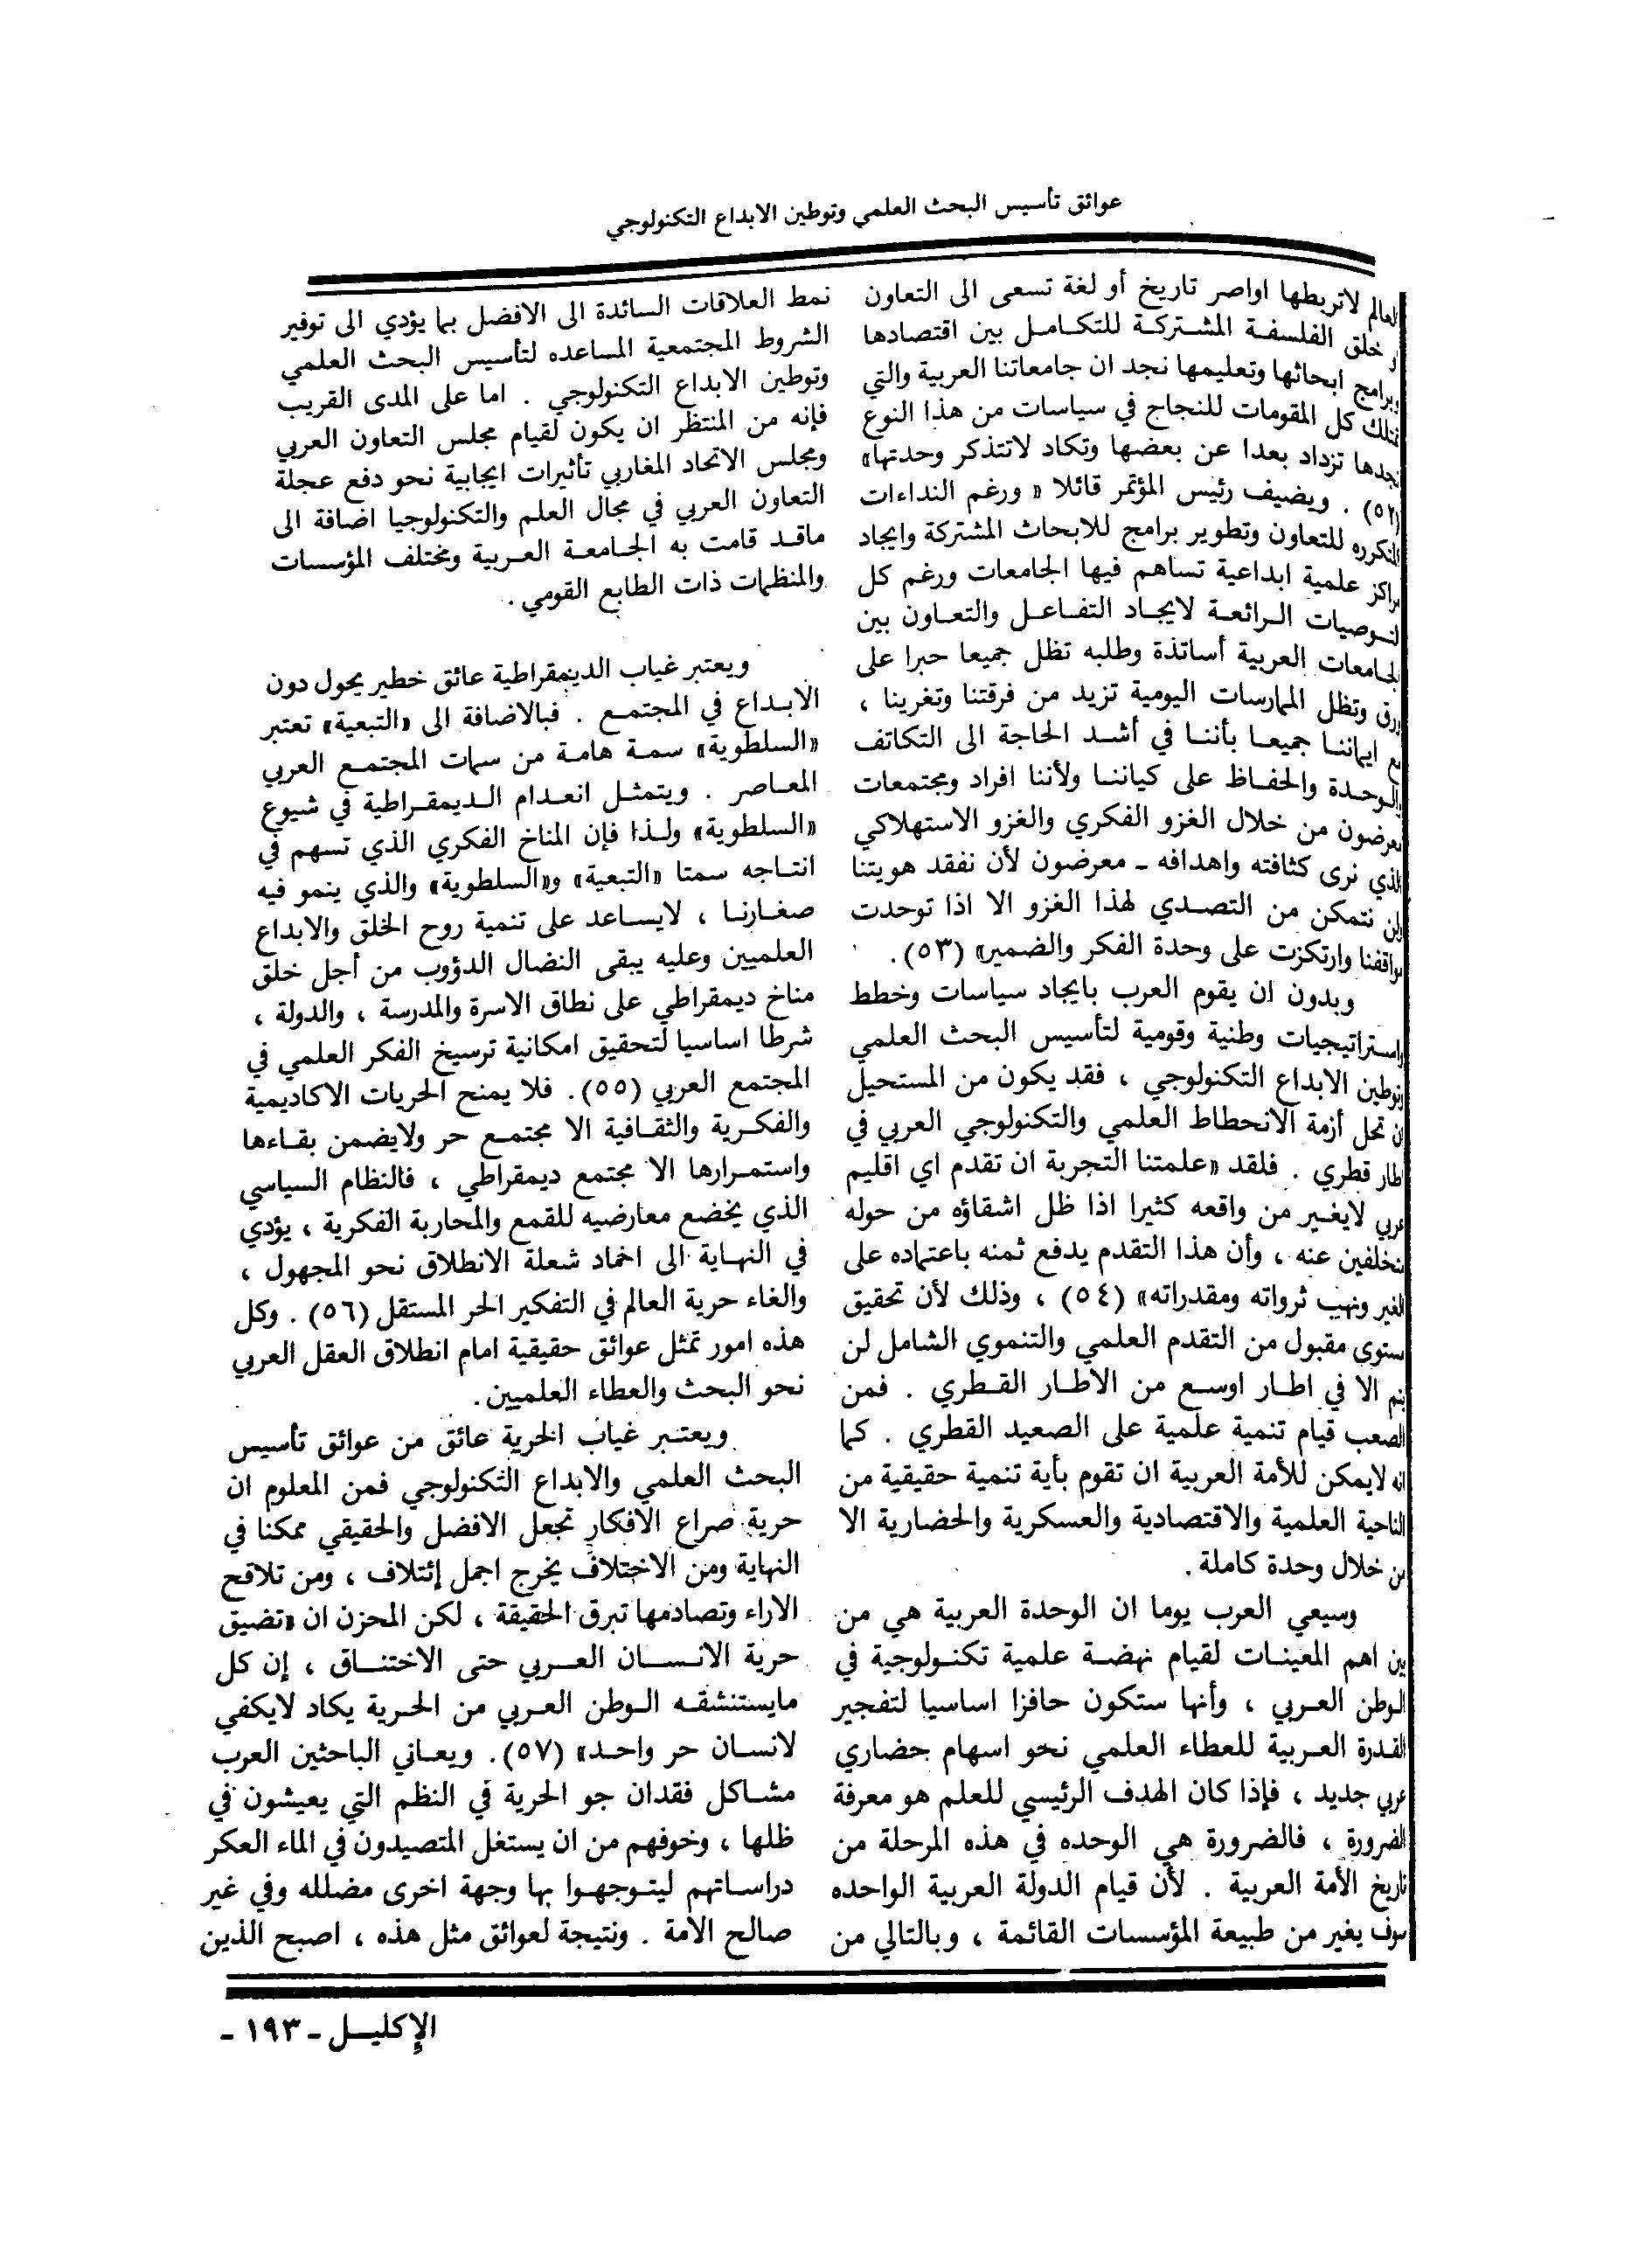 عوائق تأسيس البحث العلمي وتوطين الابداع التكنولوجي
العالم لاتربطها اواصر تاريخ أو لغة تسعى الى التعاون
و خلق الفلسفة المشتركة للتكامل بين اقتصادها
وبرامج ابحاثها وتعليمها نجد ان جامعاتنا العربية والتي
تمتلك كل المقومات للنجاح في سياسات من هذا النوع
نجدها تزداد بعدا عن بعضها وتكاد لاتتذكر وحدتها»
(٥٢) . ويضيف رئيس المؤتمر قائلا « ورغم النداءات
المتكرره للتعاون وتطوير برامج للابحاث المشتركة وايجاد
مراكز علمية ابداعية تساهم فيها الجامعات ورغم كل
التوصيات الرائعة لايجاد التفاعل والتعاون بين
الجامعات العربية أساتذة وطلبه تظل جميعا حبرا على
ورق وتظل الممارسات اليومية تزيد من فرقتنا وتغربنا ،
مع ايماننا جميعا بأننا في أشد الحاجة الى التكاتف
والوحدة والحفاظ على كياننا ولأننا افراد ومجتمعات
معرضون من خلال الغزو الفكري والغزو الاستهلاكي
الذي نرى كثافته واهدافه - معرضون لأن نفقد هويتنا
ولن نتمكن من التصدي لهذا الغزو الا اذا توحدت
مواقفنا وارتكزت على وحدة الفكر والضمير» (٥٣) .
وبدون ان يقوم العرب بايجاد سياسات وخطط
واستراتيجيات وطنية وقومية لتأسيس البحث العلمي
وتوطين الابداع التكنولوجي ، فقد يكون من المستحيل
ان تحل أزمة الانحطاط العلمي والتكنولوجي العربي في
اطار قطري . فلقد «علمتنا التجربة ان تقدم اي اقليم
عربي لايغير من واقعه كثيرا اذا ظل اشقاؤه من حوله
متخلفين عنه ، وأن هذا التقدم يدفع ثمنه باعتماده على
الغير ونهب ثرواته ومقدراته» (٥٤) ، وذلك لأن تحقيق
مستوى مقبول من التقدم العلمي والتنموي الشامل لن
يتم الا في اطار اوسع من الاطار القطري . فمن
الصعب قيام تنمية علمية على الصعيد القطري . كما
انه لايمكن للأمة العربية ان تقوم بأية تنمية حقيقية من
الناحية العلمية والاقتصادية والعسكرية والحضارية الا
من خلال وحدة كاملة .
وسيعي العرب يوما ان الوحدة العربية هي من
بين اهم المعينات لقيام نهضة علمية تكنولوجية في
الوطن العربي ، وأنها ستكون حافزا اساسيا لتفجير
القدرة العربية للعطاء العلمي نحو اسهام حضاري
عربي جديد ، فإذا كان الهدف الرئيسي للعلم هو معرفة
الضرورة ، فالضرورة هي الوحده في هذه المرحلة من
تاريخ الأمة العربية . لأن قيام الدولة العربية الواحده
سوف يغير من طبيعة المؤسسات القائمة ، وبالتالي من
نمط العلاقات السائدة الى الافضل بما يؤدي الى توفير
الشروط المجتمعية المساعده لتأسيس البحث العلمي
وتوطين الابداع التكنولوجي . اما على المدى القريب
فإنه من المنتظر ان يكون لقيام مجلس التعاون العربي
ومجلس الاتحاد المغاربي تأثيرات ايجابية نحو دفع عجلة
التعاون العربي في مجال العلم والتكنولوجيا اضافة الى
ماقد قامت به الجامعة العربية ومختلف المؤسسات
والمنظمات ذات الطابع القومي .
ويعتبر غياب الديمقراطية عائق خطير يحول دون
الابداع في المجتمع . فبالاضافة الى «التبعية» تعتبر
«السلطوية» سمة هامة من سمات المجتمع العربي
المعاصر . ويتمثل انعدام الديمقراطية في شيوع
«السلطوية» ولذا فإن المناخ الفكري الذي تسهم في
انتاجه سمتا «التبعية» و«السلطوية» والذي ينمو فيه
صغارنا ، لايساعد على تنمية روح الخلق والابداع
العلميين وعليه يبقى النضال الدؤوب من أجل خلق
مناخ ديمقراطي على نطاق الاسرة والمدرسة ، والدولة ،
شرطا اساسيا لتحقيق امكانية ترسيخ الفكر العلمي في
المجتمع العربي (٥٥) . فلا يمنح الحريات الاكاديمية
والفكرية والثقافية الا مجتمع حر ولايضمن بقاءها
واستمرارها الا مجتمع ديمقراطي ، فالنظام السياسي
الذي يخضع معارضيه للقمع والمحاربة الفكرية ، يؤدي
في النهاية الى اخماد شعلة الانطلاق نحو المجهول ،
والغاء حرية العالم في التفكير الحر المستقل (٥٦) . وكل
هذه امور تمثل عوائق حقيقية امام انطلاق العقل العربي
نحو البحث والعطاء العلميين .
ويعتبر غياب الحرية عائق من عوائق تأسيس
البحث العلمي والابداع التكنولوجي فمن المعلوم ان
حرية صراع الافكار تجعل الافضل والحقيقي ممكنا في
النهاية ومن الاختلاف يخرج اجمل إئتلاف ، ومن تلاقح
الاراء وتصادمها تبرق الحقيقة ، لكن المحزن ان «تضيق
حرية الانسان العربي حتى الاختناق ، إن كل
مايستنشقه الوطن العربي من الحرية يكاد لايكفي
لانسان حر واحد» (٥٧) . ويعاني الباحثين العرب
مشاكل فقدان جو الحرية في النظم التي يعيشون في
ظلها ، وخوفهم من ان يستغل المتصيدون في الماء العكر
دراساتهم ليتوجهوا بها وجهة اخرى مضلله وفي غير
صالح الامة . ونتيجة لعوائق مثل هذه ، اصبح الذين
الإكليل - ١٩٣ -